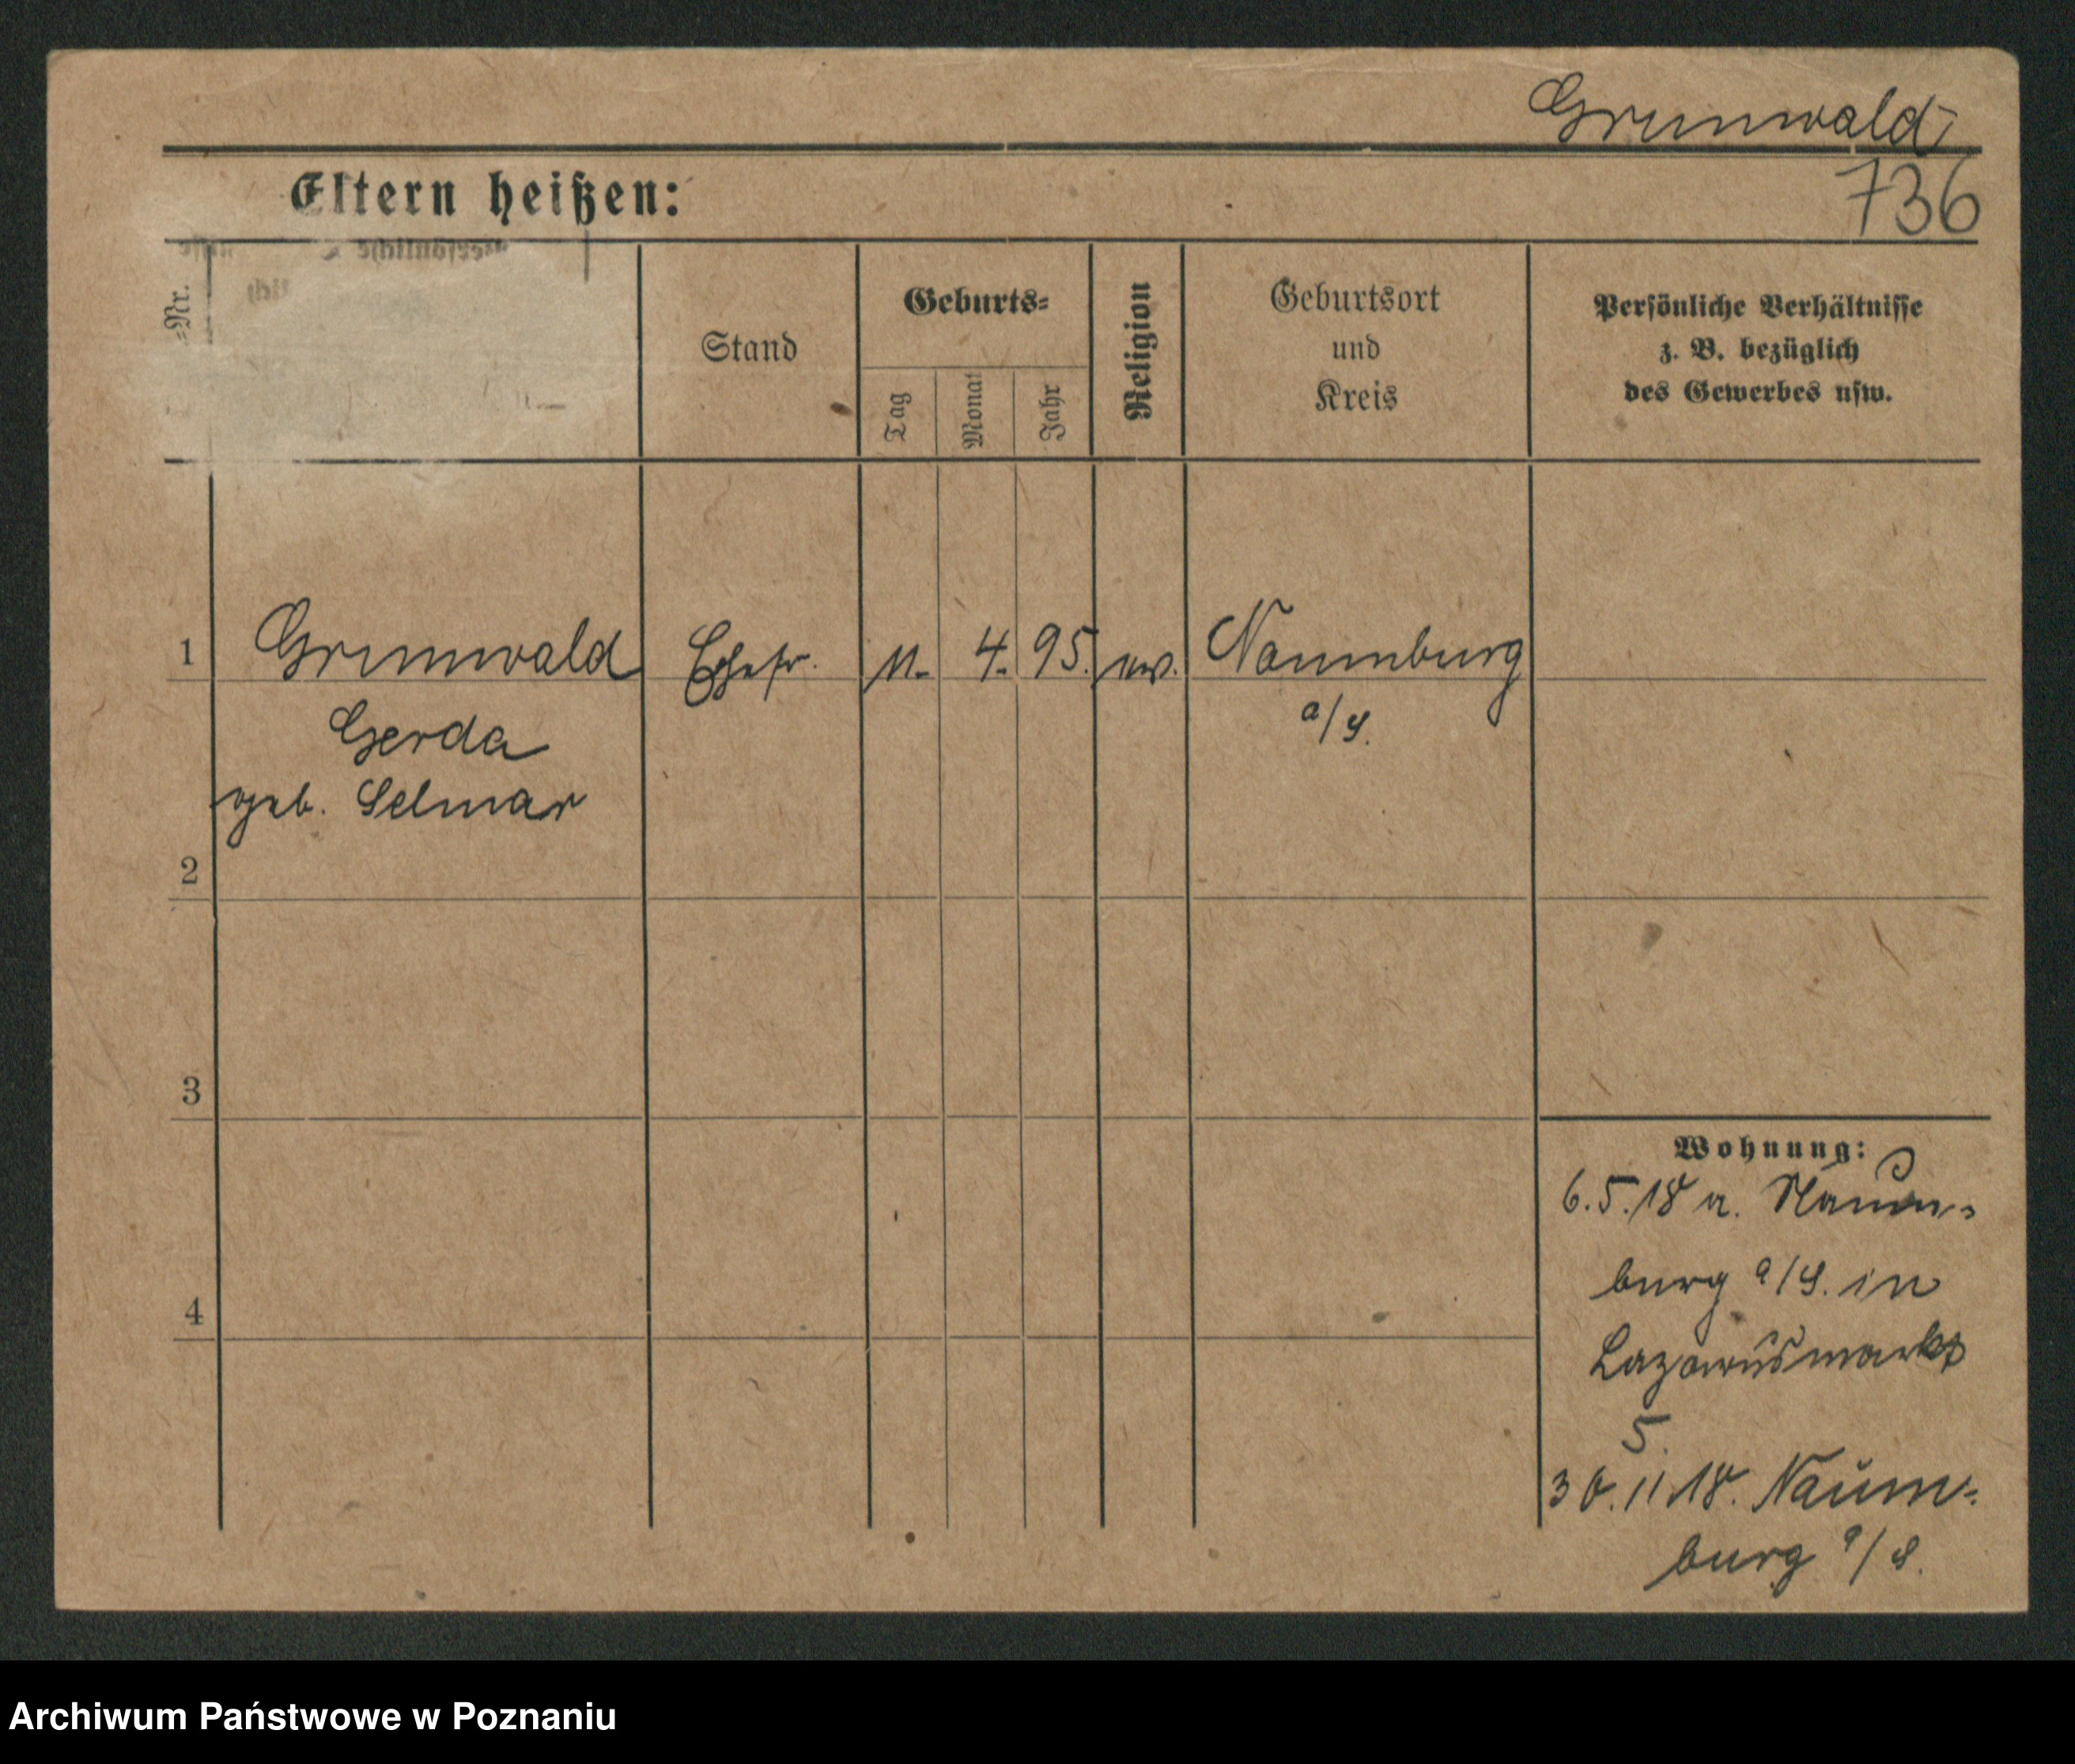 Grunwald
736
Eltern heißen:
=Nr.
Stand
Geburts=
Tag
Monat
Jahr
Religion
Geburtsort
und
Kreis
Persönliche Verhältnisse
z. B. bezüglich
des Gewerbes usw.
1 Grunwald Ehefr. 11. 4. 95. ev. Naumburg
a/S.
Gerda
geb. Selmar
2
3
4
Wohnung:
6.5.18 a. Naum-
burg a/S. in
Lazarusmarkt
5.
30.11.18. Naum-
burg a/S.
Archiwum Państwowe w Poznaniu